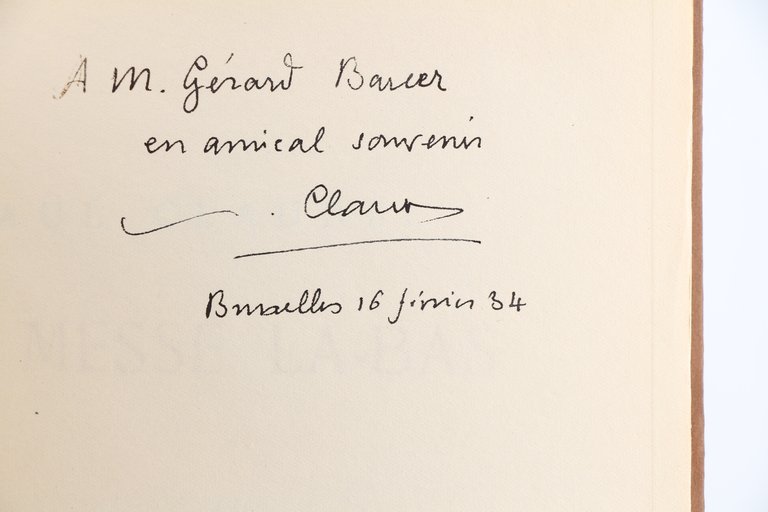 A M. Gérard Bauer
en amical souvenir
Claudel
Bruxelles 16 février 34
MESSE LA-BAS